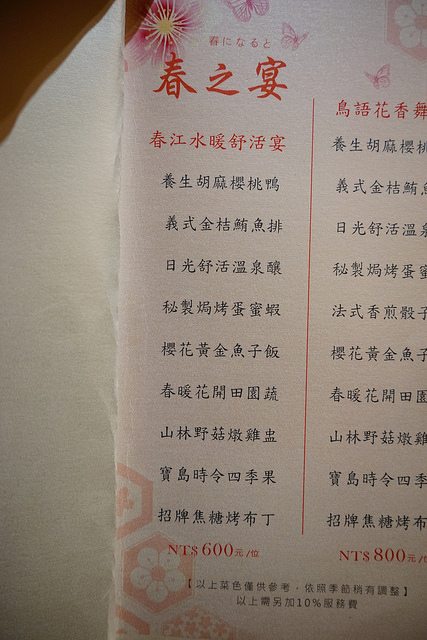 春になると
春之宴
春江水暖舒活宴
養生胡麻櫻桃鴨
義式金桔鮪魚排
日光舒活溫泉釀
秘製焗烤蛋蜜蝦
櫻花黃金魚子飯
春暖花開田園蔬
山林野菇燉雞盅
寶島時令四季果
招牌焦糖烤布丁
NT$600元/位
鳥語花香舞
養生胡麻櫻桃
義式金桔鮪魚
日光舒活溫泉
秘製焗烤蛋蜜
法式香煎骰子
櫻花黃金魚子
春暖花開田園
山林野菇燉雞
寶島時令四季
招牌焦糖烤布
NT$800元/位
【以上菜色僅供參考．依照季節稍有調整】
以上需另加10%服務費